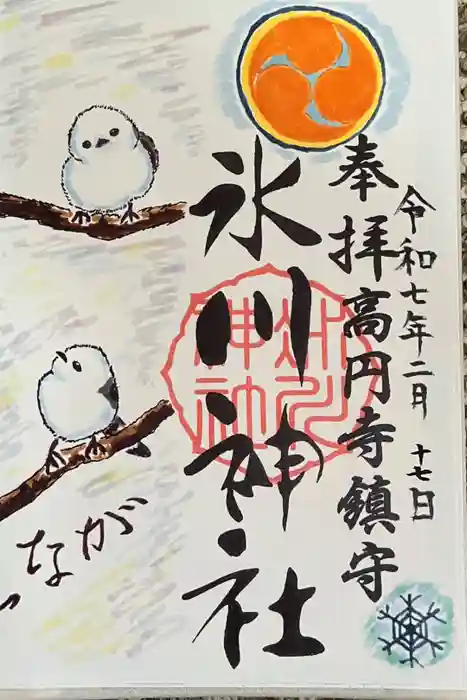 令和七年二月十七日
奉拝高円寺鎮守
氷川神社
ながい